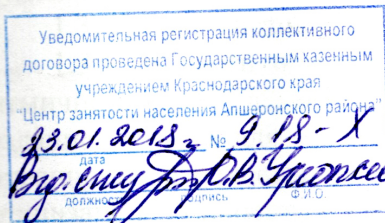 Уведомительная регистрация коллективного
договора проведена Государственным казенным
учреждением Краснодарского края
"Центр занятости населения Апшеронского района"
23.01.2018 г № 9.18-X
дата
О.В.
должность подпись Ф.И.О.